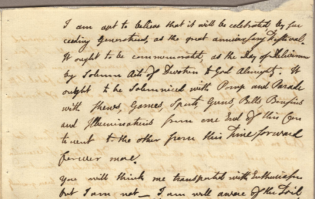 I am apt to believe that it will be celebrated, by suc
ceeding Generations, as the great anniversary Festival.
It ought to be commemorated, as the Day of Deliverance
by solemn Acts of Devotion to God Almighty. It
ought to be solemnized with Pomp and Parade
with Shews, Games, Sports, Guns, Bells, Bonfires
and Illuminations from one End of this Con
tinent to the other from this Time forward
forever more.
You will think me transported with Enthusiasm
but I am not — I am well aware of the Toil